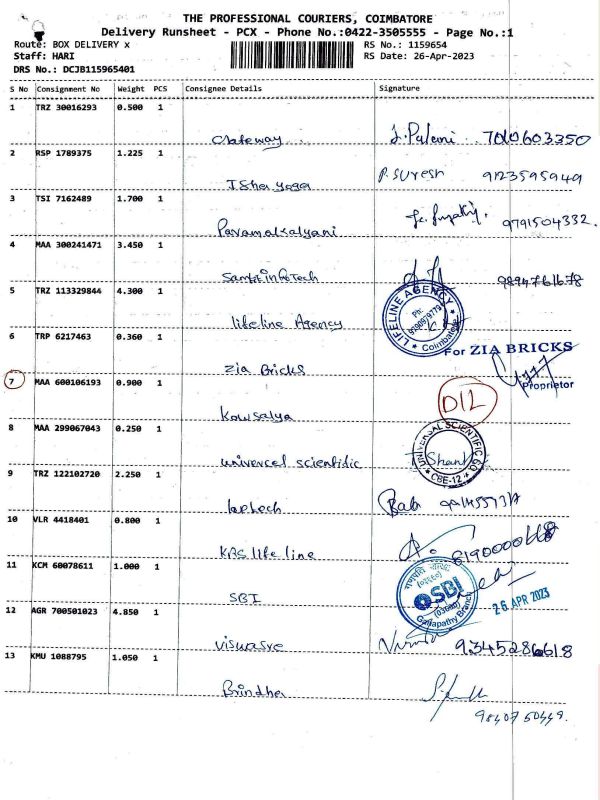 THE PROFESSIONAL COURIERS, COIMBATORE
Delivery Runsheet - PCX - Phone No.:0422-3505555 - Page No.:1
Route: BOX DELIVERY x RS No.: 1159654
Staff: HARI RS Date: 26-Apr-2023
DRS No.: DCJB115965401
S No Consignment No Weight PCS Consignee Details Signature
1 TRZ 30016293 0.500 1
Gateway J. Palani 7010603350
2 RSP 1789375 1.225 1
Isha yoga P. Suresh 9123595949
3 TSI 7162489 1.700 1
Paramakalyani 9791504332.
4 MAA 300241471 3.450 1
Samkinfotech 9894761678
5 TRZ 113329844 4.300 1
lifeline Agency
LIFELINE AGENCY
Ph:
Coimbatore
6 TRP 6217463 0.360 1
For ZIA BRICKS
zia Bricks
Proprietor
7 MAA 600106193 0.900 1
Kowsalya D12
8 MAA 299067043 0.250 1
univercel scientific
UNIVERSAL SCIENTIFIC CO
Shank
CBE-12
9 TRZ 122102720 2.250 1
leptech Bala
10 VLR 4418401 0.800 1
KBS life line
11 KCM 60078611 1.000 1
SBI
SBI
Ganapathy Branch
26 APR 2023
12 AGR 700501023 4.850 1
viswasre 9345286618
13 KMU 1088795 1.050 1
Brindha
9840750449.